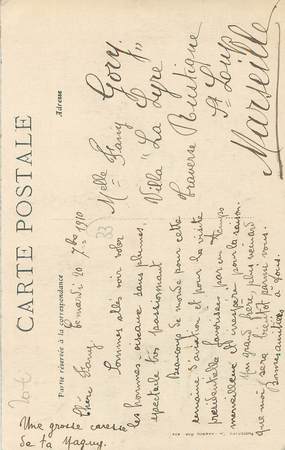 CARTE POSTALE
Partie réservée à la correspondance
Adresse
ce mardi 20 7bre 1910
Chère Fany
Sommes allés voir voler
les hommes oiseaux dans plaines,
spectacle très passionnant
Beaucoup de monde pour cette
semaine d'aviation et pour la visite
présidentielle favorisées par un temps
merveilleux et inespéré pour la saison.
Ton grand père, plus veinard
que moi sera bientôt parmi vous.
Bonnes amitiés à vous.
Une grosse caresse
de ta Maguy.
Melle Fany Gory
Villa "La Lyre"
Traverse Rustique
St Loup
Marseille